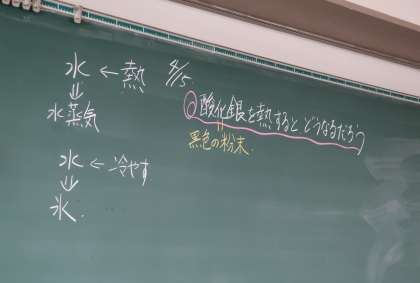 水 ← 熱
↓
水蒸気
水 ← 冷やす
↓
氷.
4/15.
◎酸化銀を熱すると どうなるだろう
黒色の粉末.